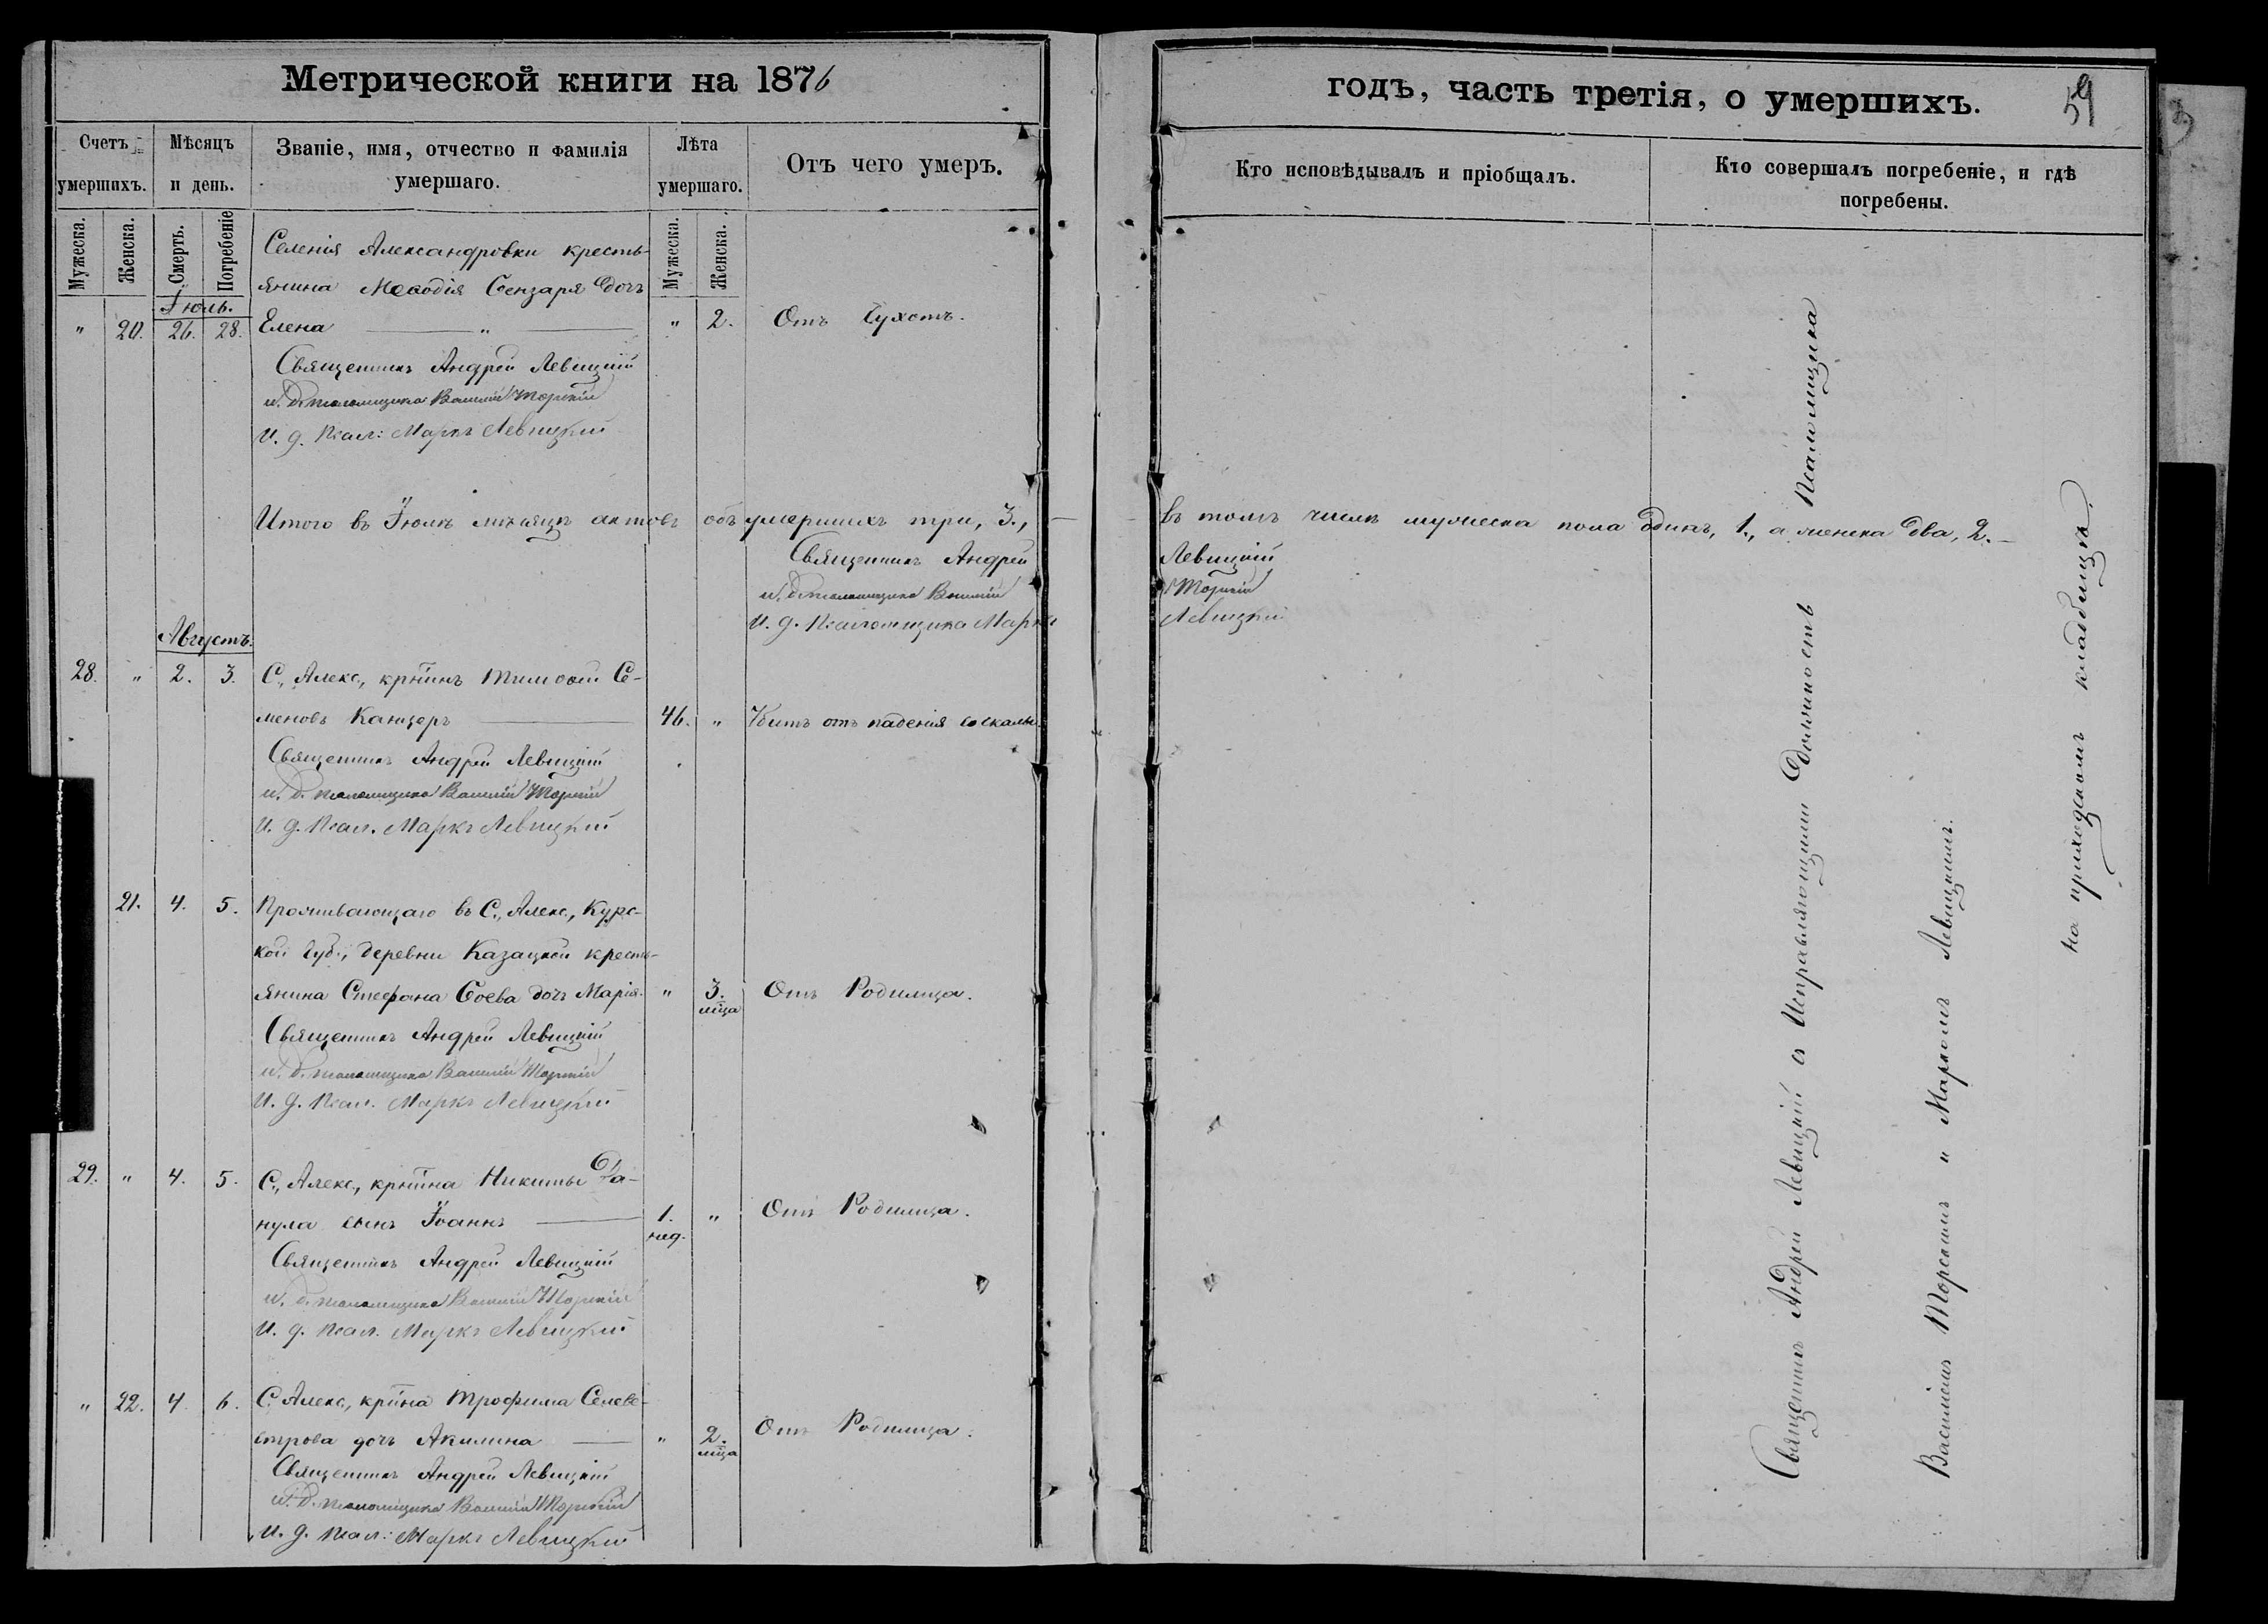 Метрической книги на 1876
Счетъ умершихъ.
Мѣсяцъ и день.
Званіе, имя, отчество и фамилія умершаго.
Лѣта умершаго.
Отъ чего умеръ.
Мужеска.
Женска.
Смерть.
Погребеніе
Мужеска.
Женска.
Селенія Александровки кресть-
янина Меѳодія Сензаря дочь
Іюль.
" 20. 26. 28. Елена " " 2. Отъ Сухотъ.
Священникъ Андрей Левицкій
и. д. псаломщика Василій Торскій
И. д. Псал: Маркъ Левицкій
Итого въ Іюлѣ мѣсяцѣ актовъ объ умершихъ три, 3.,
Священникъ Андрей
и. д. псаломщика Василій
И. д. Псаломщика Маркъ
Августъ.
28. " 2. 3. С., Алекс, кр̃тинъ Тимоѳей Се-
меновъ Канцеръ 46. " Убитъ отъ паденія со скалы.
Священникъ Андрей Левицкій
и. д. псаломщика Василій Торскій
И. д. Псал. Маркъ Левицкій
21. 4. 5. Проживающаго въ С., Алекс, Курс-
кой Губ., деревни Казацкой кресть-
янина Стефана Соева дочь Марія. " 3. мц̃а Отъ Родимца.
Священникъ Андрей Левицкій
и. д. псаломщика Василій Торскій
И. д. Псал. Маркъ Левицкій
29. " 4. 5. С., Алекс., кр̃тина Никиты Да-
нула сынъ Іоаннъ 1. нед. " Отъ Родимца.
Священникъ Андрей Левицкій
и. д. псаломщика Василій Торскій
И. д. Псал. Маркъ Левицкій
" 22. 4. 6. С. Алекс, кр̃ина Трофима Селеве-
строва дочь Акилина " 2. мц̃а Отъ Родимца.
Священникъ Андрей Левицкій
и. д. псаломщика Василій Торскій
И. д. Псал: Маркъ Левицкій
годъ, часть третія, о умершихъ.
59
Кто исповѣдывалъ и пріобщалъ.
Кто совершалъ погребеніе, и гдѣ погребены.
въ томъ числѣ мужеска пола одинъ, 1., а женска два, 2.
Левицкій
Торскій
Левицкій
Священникъ Андрей Левицкій съ Исправляющими Должность Псаломщика
Василіемъ Торскимъ " Маркомъ Левицкимъ.
на приходскомъ кладбищѣ.